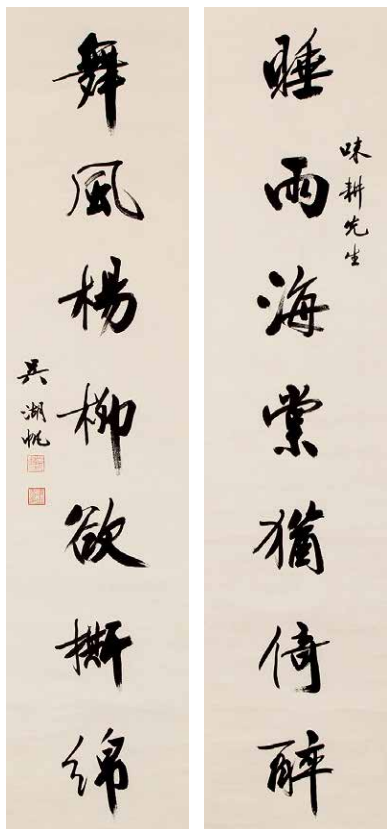 睡雨海棠猶倚醉
味耕先生
舞風楊柳欲撕綿
吳湖帆